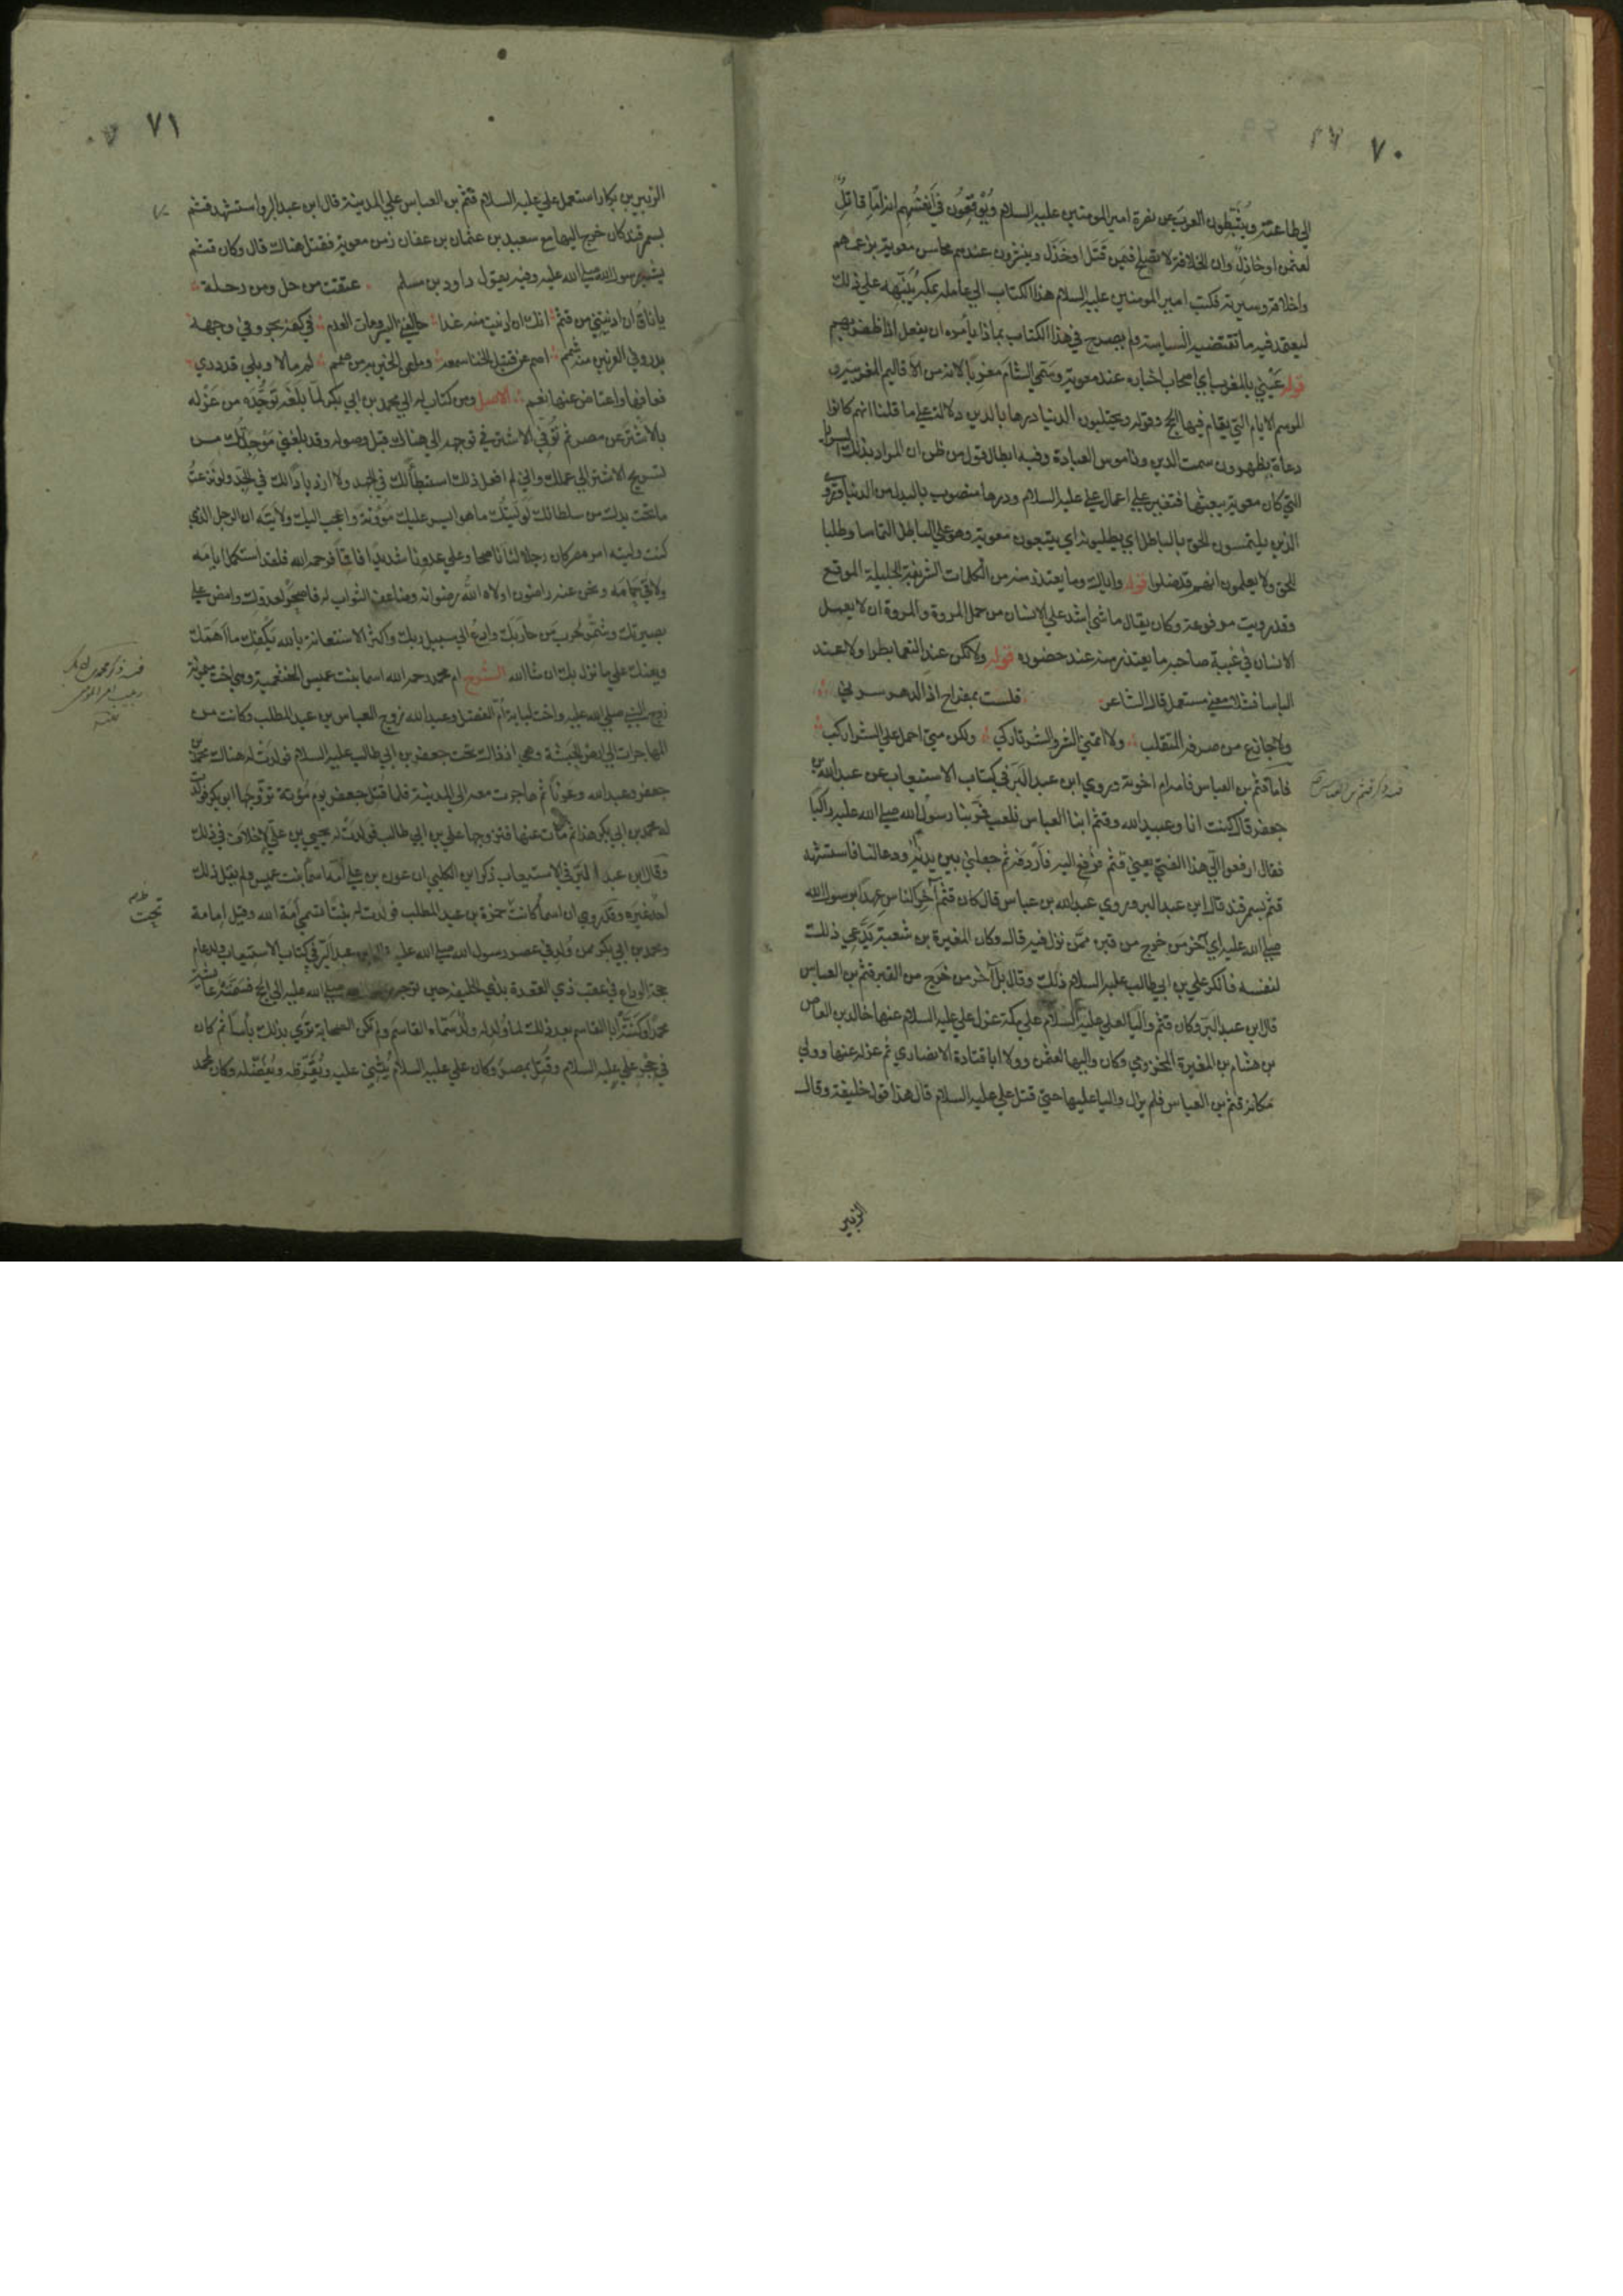 ٧٠
الي طاعته ويثبطون العرب عن نصرة امير المومنين عليه السلام ويوقعون في انفسهم انه امّا قاتلٌ
لعثمن او خاذلٌ وان الخلافة لا تصلح فيمن قتل او خذل وينشرون عندهم محاسن معوية بزعمهم
واخلاقه وسيرته فكتب امير المومنين عليه السلام هذا الكتاب الي عامله بمكه ينبّهه علي ذلك
ليعتمد فيه ما تقتضيه السياسة ولم يصرح في هذا الكتاب بماذا يأمره ان يفعل اذا ظفر بهم
قوله عيني بالمغرب اي اصحاب اخباره عند معوية وسمي الشام مغربا لانه من الاقاليم المغربية و
الموسم الايام التي يقام فيها الحج وقوله ويحتلبون الدنيا درها بالدين دلالة علي ما قلنا انهم كانوا
دعاة يظهرون سمت الدين وناموس العبادة وفيه ابطال قول من ظن ان المراد بذلك السرايا
التي كان معوية يبعثها فتغير علي اعمال علي عليه السلام ودرها منصوب بالبدل من الدنيا وتروي
الذين يلتمسون الحق بالباطل اي يطلبونه اي يتبعون معوية وهو علي الباطل التماسا وطلبا
للحق ولا يعلمون انهم قد ضلوا قوله واياك وما يعتذر منه من الكلمات الشريفة الجليلة الموقع
وقد رويت مرفوعة وكان يقال ما شي اشد علي الانسان من حمل المروة والمروة ان لا يعمل
الانسان في غيبة صاحبه ما يعتذر منه عند حضوره قوله ولا تكن عند النعما بطرا ولا عند
الباسا فشلا معني مستعمل قال الشاعر فلست بمفراح اذا الدهر سرني
ولا جازع من صرفه المتقلب ولا اتمني الشر والشر تاركي ولكن متي احمل علي الشر اركب
فاما قثم بن العباس فامه ام اخوته وروي ابن عبد البر في كتاب الاستيعاب عن عبد الله بن
جعفر قال كنت انا وعبيد الله وقثم ابنا العباس نلعب فمر بنا رسول الله صلي الله عليه راكبا
فقال ارفعوا الي هذا الفتي يعني قثم فرُفع اليه فاردفه ثم جعلني بين يديه ودعا لنا فاستشهد
قثم بسمرقند قال ابن عبد البر وروي عبد الله بن عباس قال كان قثم آخر الناس عهدا برسول الله
صلي الله عليه اي آخر من خرج من قبره ممن نزل فيه قال وكان المغيرة بن شعبة يدعي ذلك
لنفسه فانكر علي بن ابي طالب عليه السلام ذلك وقال بل آخر من خرج من القبر قثم بن العباس
قال ابن عبد البر وكان قثم واليا لعلي عليه السلام علي مكة عزل علي عليه السلام عنها خالد بن العاص
بن هشام بن المغيرة المخزومي وكان واليها لعثمن وولا ابا قتادة الانصاري ثم عزله عنها وولي
مكانه قثم بن العباس فلم يزل واليا عليها حتي قتل علي عليه السلام قال هذا قول خليفة وقال
الزبير
٧١
الزبير بن بكار استعمل علي عليه السلام قثم بن العباس علي المدينة قال ابن عبد البر واستشهد قثم
بسمرقند كان خرج اليها مع سعيد بن عثمان بن عفان زمن معوية فقتل هناك قال وكان قثم
يشبه رسول الله صلي الله عليه وفيه يقول داود بن مسلم عتقت من حل ومن رحلة
يا ناق ان ادنيتني من قثم انك ان ادنيت منه غدا حالفني اليسر ومات العدم في كفه بحر وفي وجهه
بدر وفي العرنين منه شمم اصم عن قيل الخنا سمعه وما عن الخير به من صمم لم يدر ما لا وبلي قد دري
فعافها واعتاض عنها نعم الاصل ومن كتاب له الي محمد بن ابي بكر لما بلغه توجده من عزله
بالاشتر عن مصر ثم توفي الاشتر في توجهه الي هناك قبل وصوله وقد بلغني موجدتك من
تسريح الاشتر الي عملك واني لم افعل ذلك استبطاءً لك في الجهد ولا ازديادا لك في الجد ولو نزعت
ما تحت يدك من سلطانك لوليتك ما هو ايسر عليك مؤونة واعجب اليك ولاية ان الرجل الذي
كنت وليته امر مصر كان رجلا لنا ناصحا وعلي عدونا شديدا ناقما فرحمه الله فلقد استكمل ايامه
ولاقي حمامه ونحن عنه راضون اولاه الله رضوانه وضاعف الثواب له فاصحر لعدوك وامض علي
بصيرتك وشمر لحرب من حاربك وادع الي سبيل ربك واكثر الاستعانة بالله يكفك ما اهمك
ويعنك علي ما نزل بك ان شا الله الشرح ام محمد رحمه الله اسما بنت عميس الخثعمية وهي اخت ميمونة
زوج النبي صلي الله عليه واخت لبابة ام الفضل وعبد الله زوج العباس بن عبد المطلب وكانت من
المهاجرات الي ارض الحبشة وهي اذ ذاك تحت جعفر بن ابي طالب عليه السلام فولدت له هناك محمد بن
جعفر وعبد الله وعونا ثم هاجرت معه الي المدينة فلما قتل جعفر يوم مؤتة تزوجها ابو بكر فولدت
له محمد بن ابي بكر هذا ثم مات عنها فتزوجها علي بن ابي طالب فولدت له يحيي بن علي لا خلاف في ذلك
وقال ابن عبد البر في الاستيعاب ذكر ابن الكلبي ان عون بن علي امه اسما بنت عميس ولم يقل ذلك
احد غيره وقد روي ان اسما كانت تحت حمزة بن عبد المطلب فولدت له بنتا تسمي امة الله وقيل امامة
ومحمد بن ابي بكر ممن ولد في عصر رسول الله صلي الله عليه قال ابن عبد البر في كتاب الاستيعاب ولد عام
حجة الوداع في عقب ذي القعدة بذي الحليفة حين توجه صلي الله عليه الي الحج فسمته عائشة
محمدا وكنته ابا القاسم بعد ذلك لما ولد له ولد سماه القاسم ولم تكن الصحابة تري بذلك بأسا ثم كان
في حجر علي عليه السلام وقتل بمصر وكان علي عليه السلام يثني عليه ويقرظه ويفضله وكان لمحمد